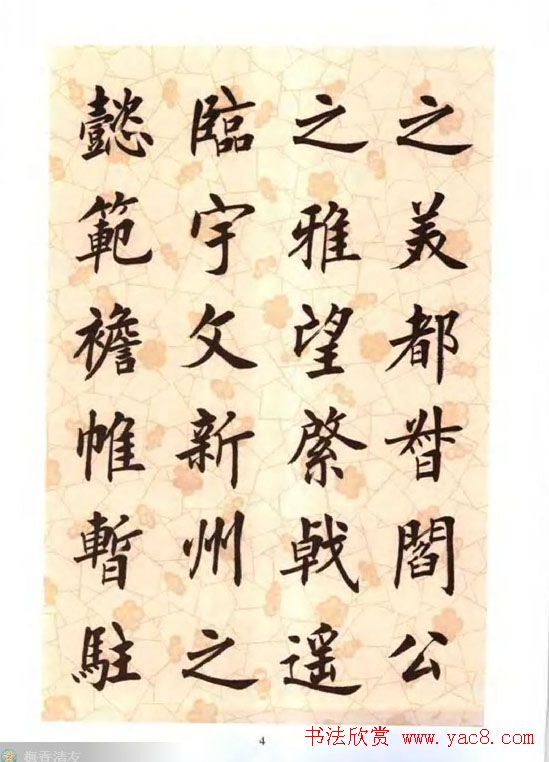 之美都督閻公
之雅望綮戟遥
臨宇文新州之
懿範襜帷暫駐
4
书法欣赏 www.yac8.com